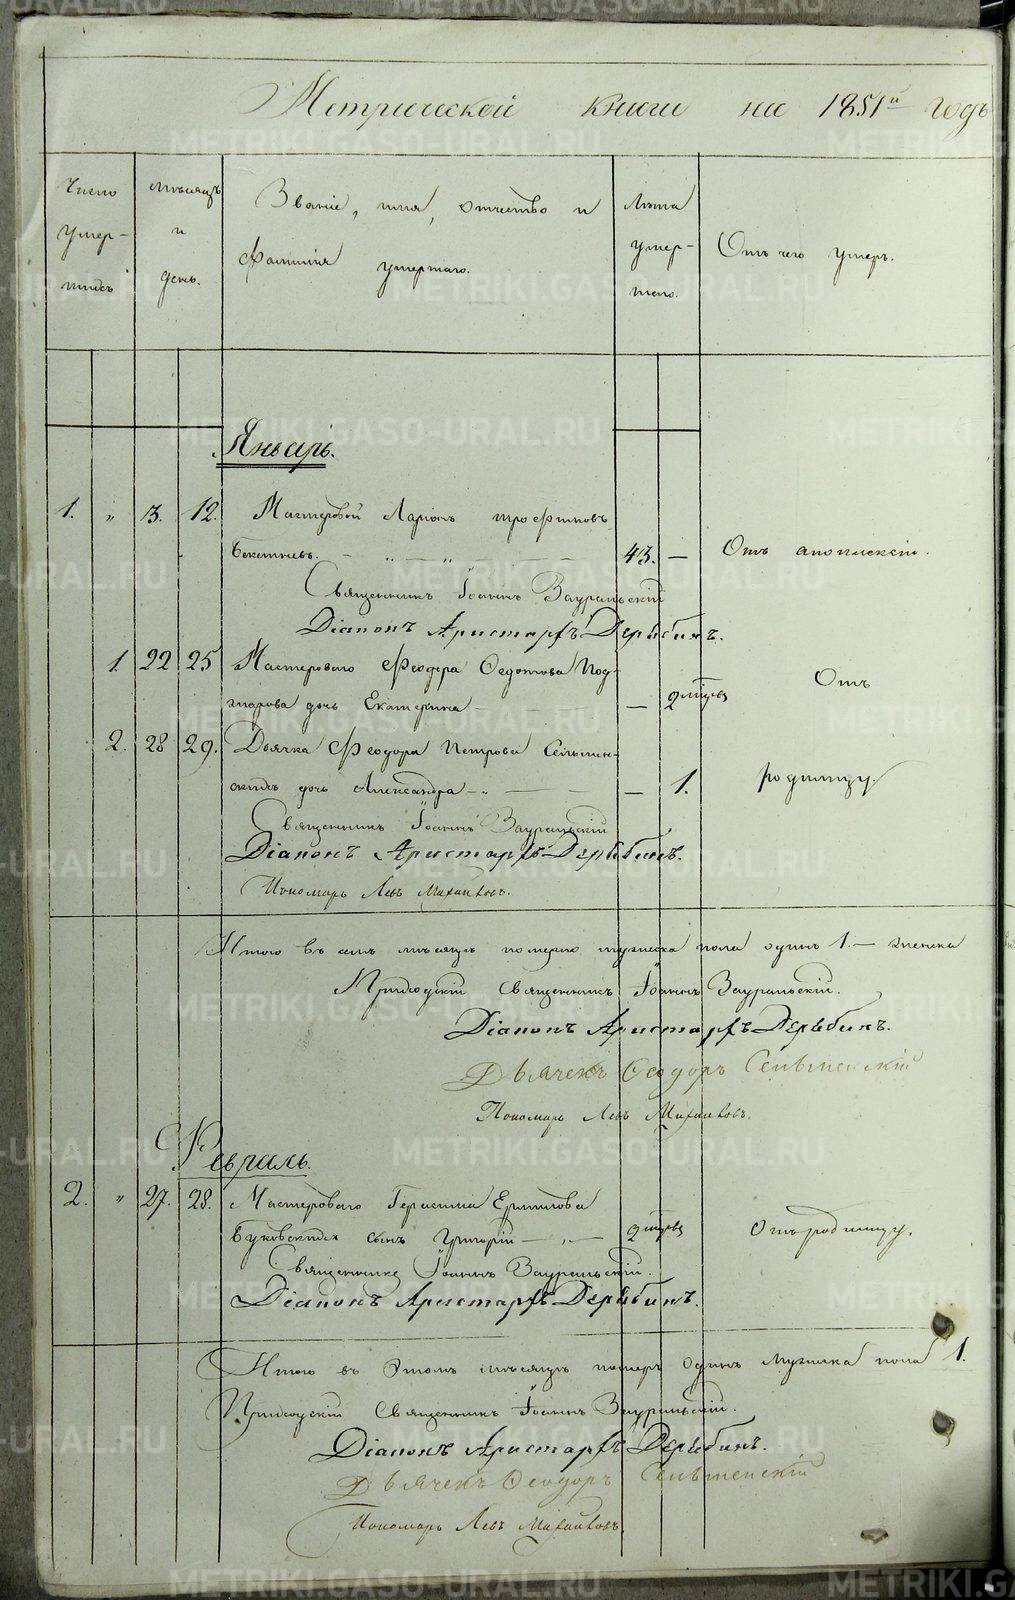 Метрической книги на 1851й годъ
Число умер-шихъ
мѣсяцъ и день.
Званіе, имя, отчество и фамилія умершаго.
Лѣта умер-шаго.
Отъ чего умеръ.
Январь.
1. " 3. 12. Мастеровой Ларіонъ Трофимовъ
43. — Отъ апоплексіи.
Священникъ Іоаннъ Зауральскій
Діаконъ Аристархъ Дерябинъ.
1. 22 25 Мастероваго Феодора Федотова Под-
дочь Екатерина — 2 мѣсяц. Отъ
2. 28 29. Дьячка Феодора Петрова Сельмен-
скихъ дочь Александра — 1. родимцу.
Священникъ Іоаннъ Зауральскій
Діаконъ Аристархъ Дерябинъ.
Пономарь Левъ Михайловъ.
Итого въ семъ мѣсяцѣ померло мужеска пола одинъ 1. — женска
Приходскій Священникъ Іоаннъ Зауральскій.
Діаконъ Аристархъ Дерябинъ.
Дьячекъ Феодоръ Сельменскій
Пономарь Левъ Михайловъ.
Февраль.
2. " 27. 28. Мастероваго Герасима Ермилова
сынъ Григорій — " — 2 мѣсяц. Отъ родимцу.
Священникъ Іоаннъ Зауральскій.
Діаконъ Аристархъ Дерябинъ.
Итого въ этомъ мѣсяцѣ померъ одинъ мужеска пола 1.
Приходскій Священникъ Іоаннъ Зауральскій.
Діаконъ Аристархъ Дерябинъ.
Дьячекъ Феодоръ Сельменскій
Пономарь Левъ Михайловъ.
METRIKI.GASO-URAL.RU